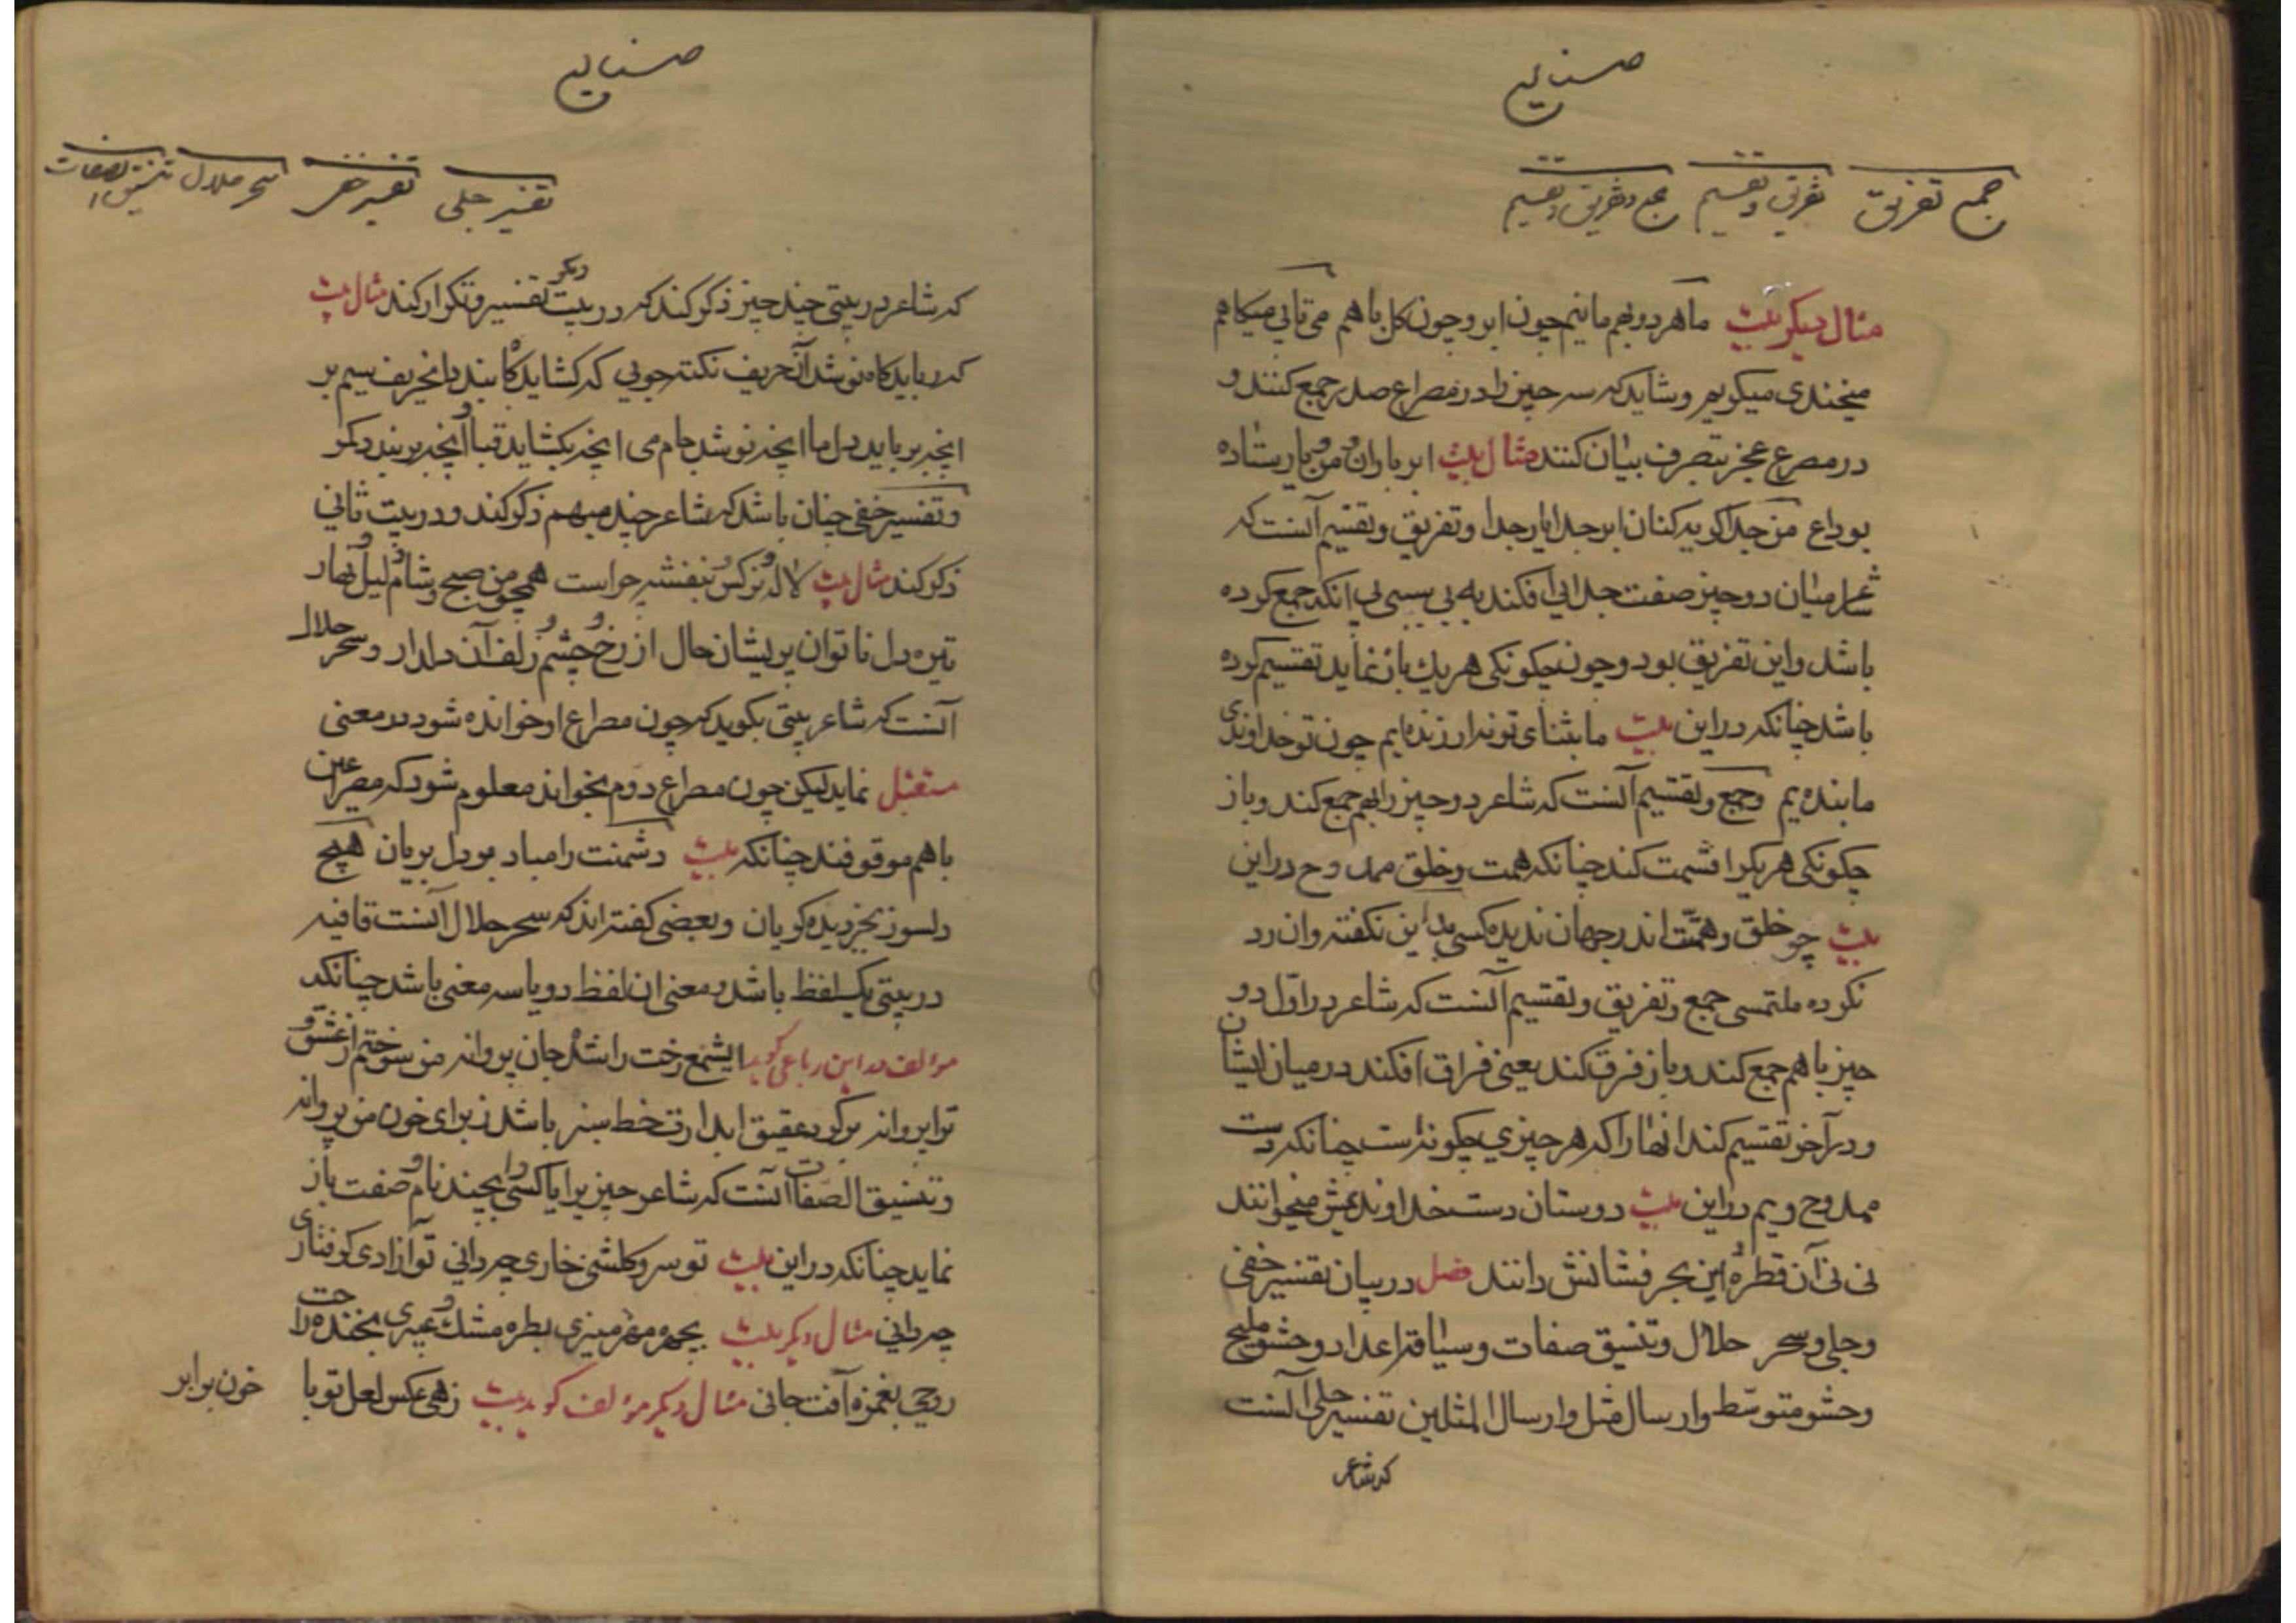 صنایع
جمع تفریق تفریق و تقسیم جمع و تفریق و تقسیم
مثال دیکر بیت ماهر دو بهم مانیم چون ابر و چون کل با هم می تابی میکاهم
میخندی میکریم وشاید که سه چیز را در مصراع صدر جمع کنند و
در مصرع عجز بتصرف بیان کنند مثال بیت ابر باران و من و یار ستاده
بوداع من جدا کریه کنان ابر جدا یار جدا وتفریق وتقسیم آنست که
شاعر میان دو چیز صفت جدایی افکند به بی سببی بی انکه جمع کرده
باشد واین تفریق بود وچون چکونکی هر یک باز نماید تقسیم کرده
باشد چنانکه دراین بیت ما بثنای تو ندار زنده ایم چون تو خداوندی
ما بنده یم وجمع وتقسیم آنست که شاعر دو چیز را بهم جمع کند وباز
چکونکی هر یکرا قسمت کند چنانکه همت وخلق ممدوح دراین
بیت چو خلق وهمّت اندر جهان ندیده کسی بداین نکفته وان رد
نکرده ملتمسی جمع وتفریق وتقسیم آنست که شاعر در اوّل دو
چیز با هم جمع کند وباز فرق کند یعنی فراق افکند در میان ایشان
ودر آخر تقسیم کند انها را که هر چیزی چکونه است چنانکه دست
ممدوح ویم دراین بیت دوستان دست خداوند یمش میخوانند
نی نی آن قطره و این بحر فشانش دانند فصل در بیان تفسیر خفی
وجلی وسحر حلال وتنسیق صفات وسیاقة اعداد وحشو ملیح
وحشو متوسّط وارسال مثل وارسال المثلین تفسیر جلی آنست
که شاعر
صنایع
تفسیر جلی تفسیر خفی سحر حلال تنسیق الصفات
که شاعر در بیتی چند چیز ذکر کند که در بیت دیکر تفسیر وتکرار کند مثال بیت
که رباید کاه نوشد آن حریف نکته جویی که کشاید کاه بندد انحریف سیم بر
انچه برباید دل ما انچه نوشد جام می انچه بکشاید قبا و آنچه بربندد کمر
وتفسیر خفی چنان باشد که شاعر چند مبهم ذکر کند ودر بیت ثانی
ذکر کند مثال بیت لاله و نرکس و بنفشه چراست همچو من صبح و شام و لیل و نهار
تیره دل ناتوان پریشان حال از رخ و چشم و زلف آن دلدار وسحر حلال
آنست که شاعر بیتی بکوید که چون مصراع او خوانده شود در معنی
مستقبل نماید لیکن چون مصراع دوم بخواند معلوم شود که مصراعین
با هم موقوفند چنانکه بیت دشمنت را مباد بر دل بریان هیچ
دلسوز بجز دیده کریان وبعضی کفته اند که سحر حلال آنست قافیه
در بیتی یک لفظ باشد ومعنی ان لفظ دو یا سه معنی باشد چنانکه
مؤلف در این رباعی کوید ایشمع رخت را شده جان پروانه من سوختم از عشق و
ترا پروانه بر کرد عقیق ابدارت خط سبز باشد ز برای خون من پروانه
وتنسیق الصفات آنست که شاعر چیزیرا یا کسی را بچند نام و صفت باز
نماید چنانکه دراین بیت تو سرو کلشنی خاری چه دانی تو آزادی کرفتاری
چه دانی مثال دیکر بیت بچهره مهر منیری بطره مشک و عبیری بخنده راحت
روحی بغمزه آفت جانی مثال دیکر مؤلف کوید بیت زهی عکس لعل تو با خون برابر